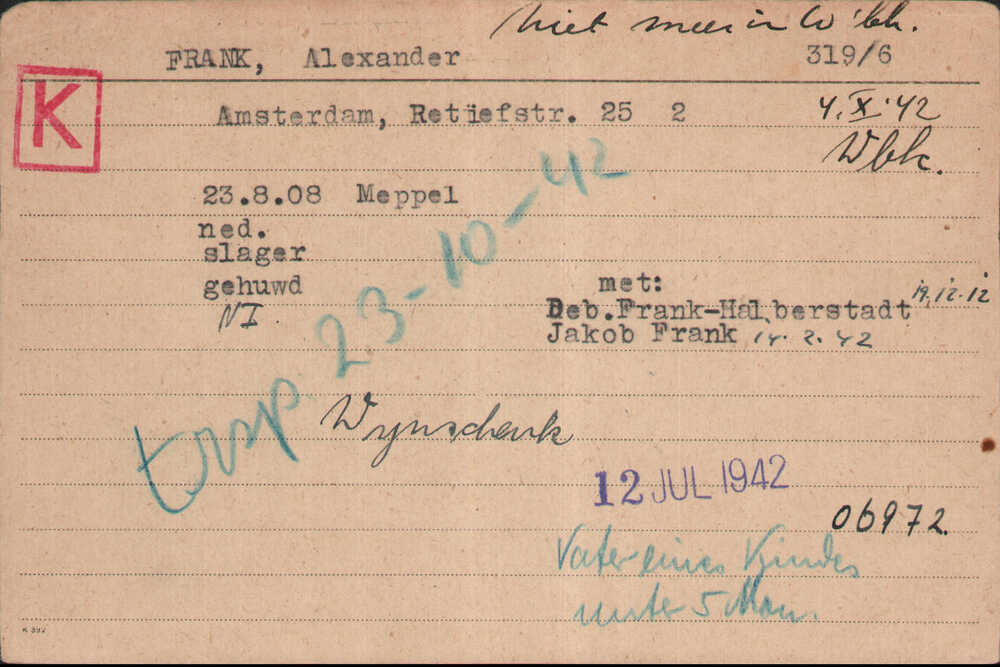 niet meer in W'bk.
FRANK, Alexander 319/6
K
Amsterdam, Retiefstr. 25 2 4.X.42
Wbk.
23.8.08 Meppel
ned.
slager
gehuwd met:
NI. Deb.Frank-Halberstadt 19.12.12
Jakob Frank 14.2.42
trsp. 23-10-42
Wijnschenk
12 JUL 1942
06972.
Vater eines Kindes
unter 5 Mon.
K 392